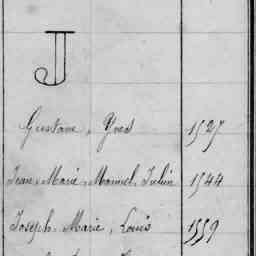 J
Gustave, Yves 1527
Jean, Marie, Manuel, Julien 1544
Joseph, Marie, Louis 1559